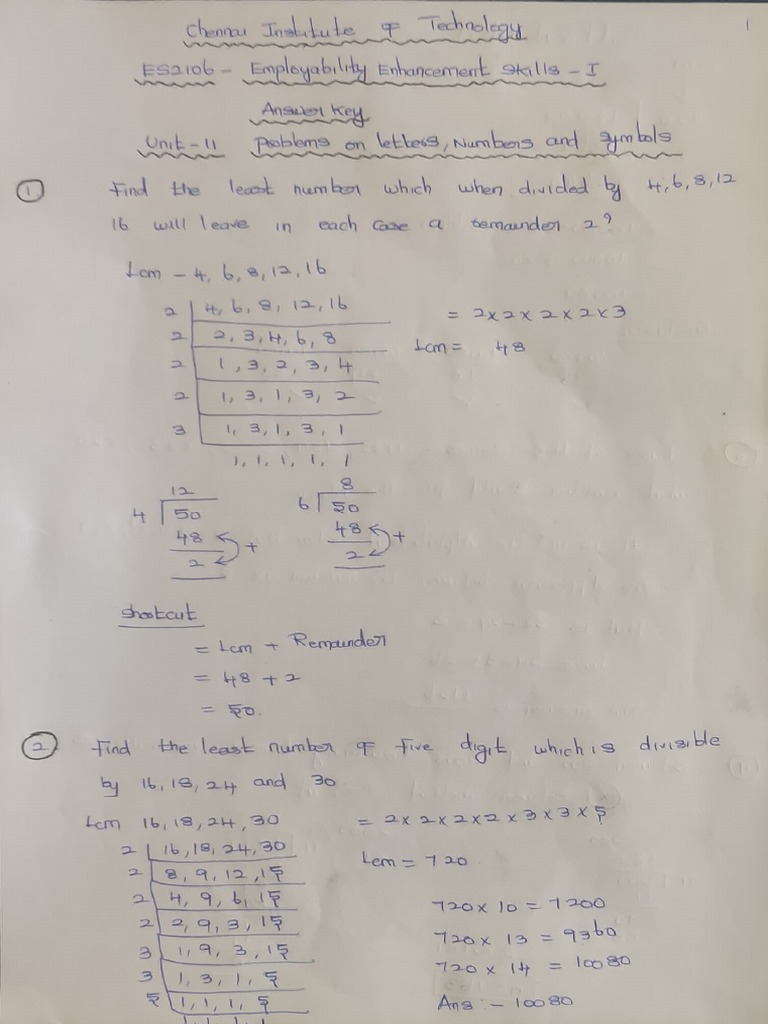 1
Chennai Institute of Technology
ES2106 - Employability Enhancement Skills - I
Answer Key
Unit - II Problems on letters, Numbers and symbols
1 Find the least number which when divided by 4, 6, 8, 12
16 will leave in each case a remainder 2?
Lcm - 4, 6, 8, 12, 16
2 | 4, 6, 8, 12, 16
2 | 2, 3, 4, 6, 8
2 | 1, 3, 2, 3, 4
2 | 1, 3, 1, 3, 2
3 | 1, 3, 1, 3, 1
1, 1, 1, 1, 1
= 2 x 2 x 2 x 2 x 3
Lcm = 48
12
4 | 50
48
2
+
8
6 | 50
48
2
+
Shortcut
= Lcm + Remainder
= 48 + 2
= 50.
2 Find the least number of five digit which is divisible
by 16, 18, 24 and 30
Lcm 16, 18, 24, 30
2 | 16, 18, 24, 30
2 | 8, 9, 12, 15
2 | 4, 9, 6, 15
2 | 2, 9, 3, 15
3 | 1, 9, 3, 15
3 | 1, 3, 1, 5
5 | 1, 1, 1, 5
1, 1, 1, 1
= 2 x 2 x 2 x 2 x 3 x 3 x 5
Lcm = 720
720 x 10 = 7200
720 x 13 = 9360
720 x 14 = 10080
Ans :- 10080